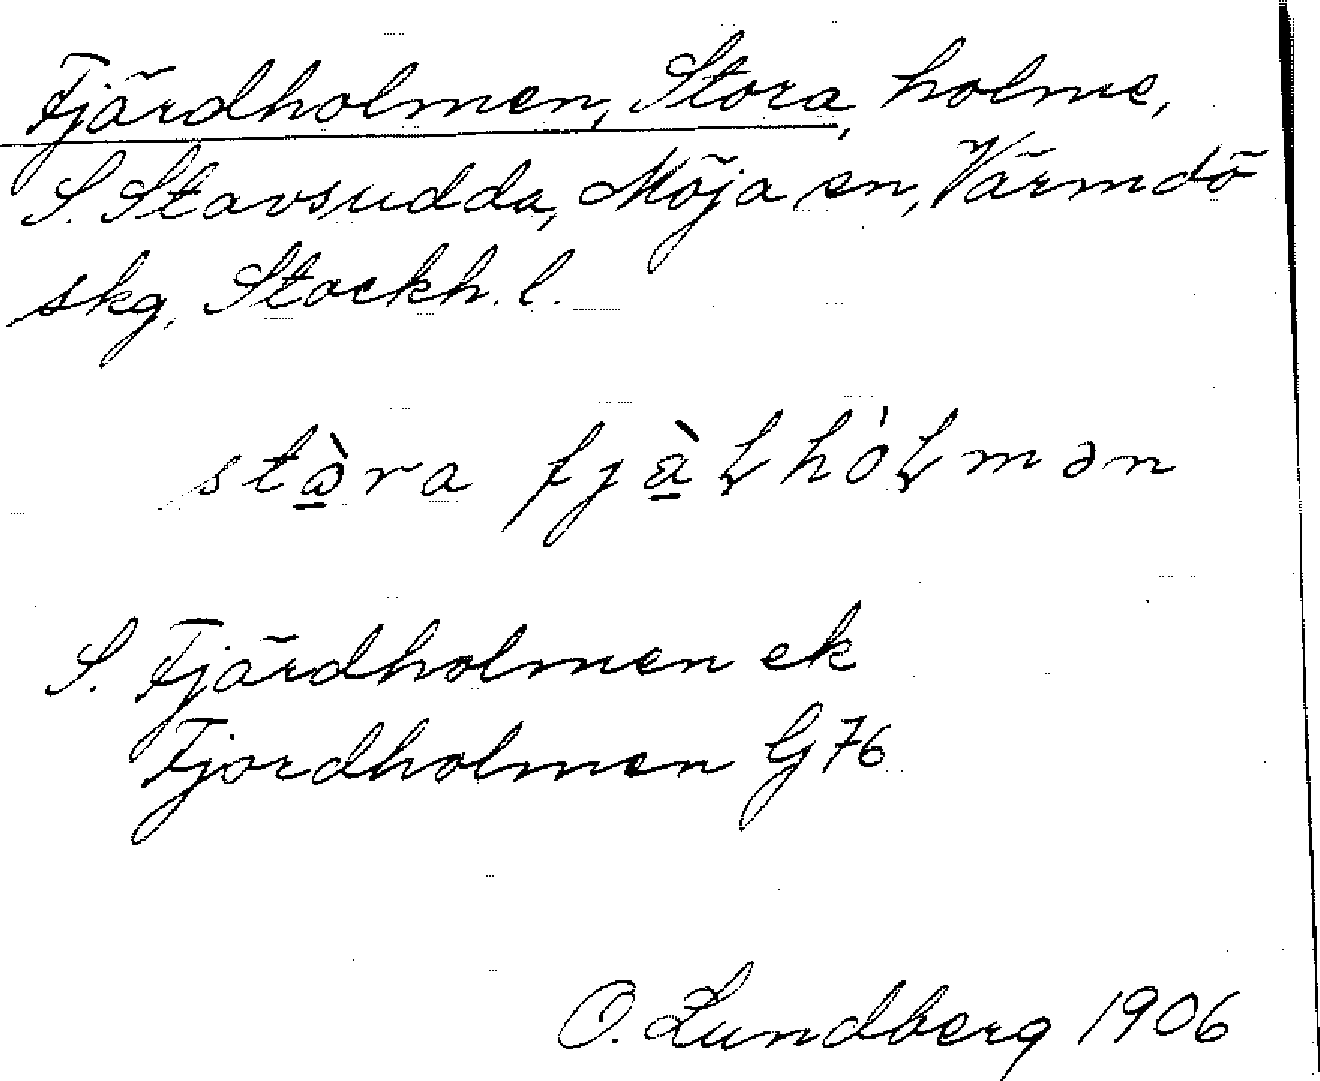 Fjärdholmen, Stora, holme,
S. Stavsudda, Möja sn, Värmdö
skg, Stockh. l.
stɷ̠̀ra fjæ̠̀ɫhóɫmən
S. Fjärdholmen ek
Fjordholmen G 76
O. Lundberg 1906